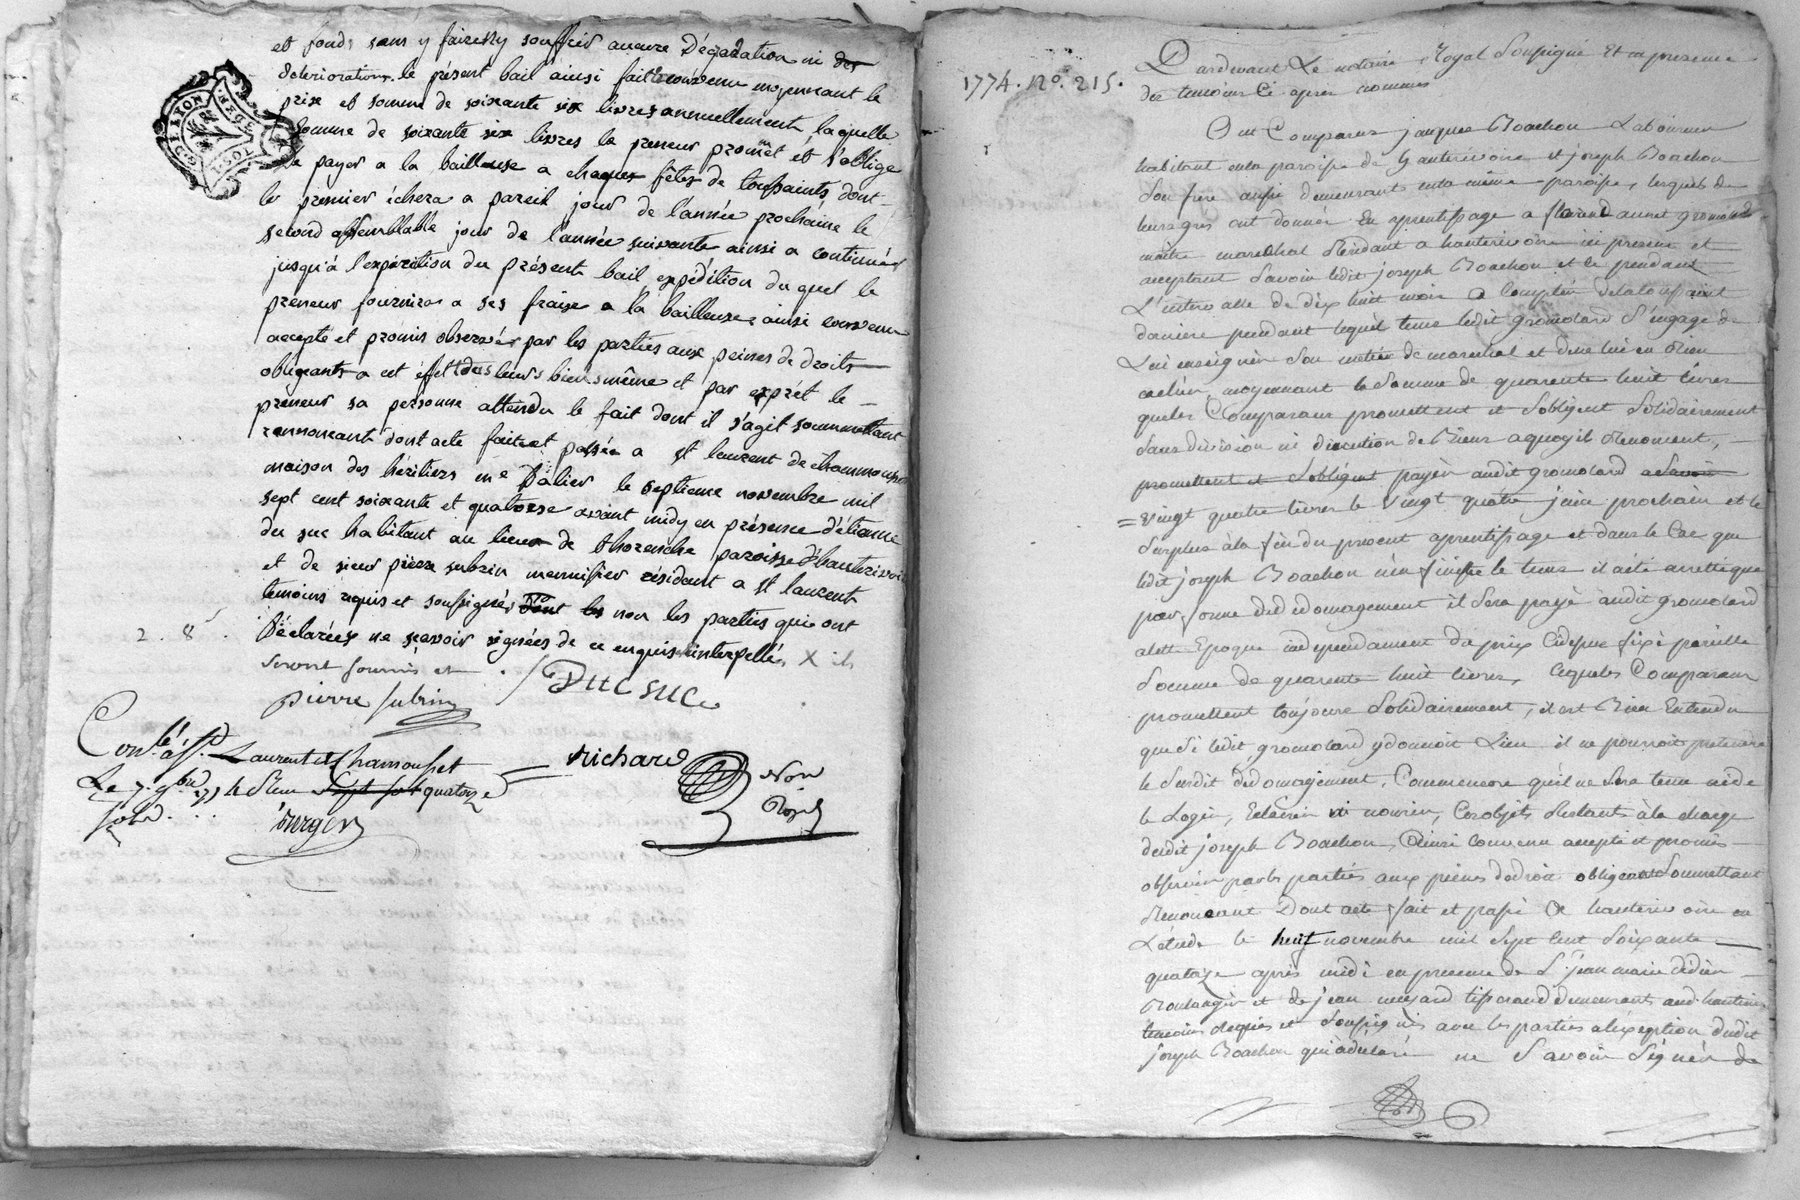 et fonds sans y faire ny souffrir aucune Dégradation ni des
deteriorations le présent bail ainsi fait & convenu moyennant le
prix et somme de soixante six livres annuellement, laquelle
somme de soixante six livres le preneur promet et s'oblige
de payer a la bailleuse a chaques fêtes de toussaints, dont
le premier échera a pareil jour de l'année prochaine le
second assemblable jour de l'année suivante ainsi a continuér
jusqu'à l'expiration du présent bail, expédition du quel le
preneur fournira a ses fraix a la bailleuse; ainsi convenu
accepté et promis observér par les parties aux peines de droits
obligeants a cet éffet tous leurs biens même et par exprêt le
preneur sa personne attendu le fait dont il s'agit soummettant
rennoncant dont acte fait et passée a st laurent de chamousset
maison des héritiers me Dalier le septieme novembre mil
sept cent soixante et quatorse avant midy en présence d'étienne
du suc habitant au lieu de thorenche paroisse d'hauterivoire
et de sieur pierre subrin menuisier résident a st laurent
temoins requis et soussignés non les parties qui ont
Déclarées ne scavoir signées de ce enquis & interpellés X ils
2 . 8
seront fournis et
DUCSUC
pierre subrin
Con.lé à St. Laurent de Chamousset
Le 7. 9bre 1774 quatorze
sols
Richard
Nore
Royal
burger
G. D. LYON
1774. N°. 215.
Pardevant Le notaire Royal Soussigné Et en presence
des temoins Ci apres nommés
Ont Comparus jacques Boachon Laboureur
habitant en la paroisse de hauterivoire et joseph Boachon
Son frere aussi demeurant en la même paroisse, lesquels de
leurs gres ont donné En aprentissage a
maitre marechal Residant a hauterivoire ici present et
acceptant Savoir ledit joseph Boachon et ce pendant
L'intervalle de dix huit mois a Compter de la toussaint
daniere pendant lequel tems ledit gromolard S'engage de
Lui enseigner Son metier de marechal et de ne lui en Rien
cacher, moyennant la Somme de quarente huit livres
que les Comparans promettent et S'obligent Solidairement
Sans division ni discution de Biens a quoy ils Renoncent,
promettent et S'obligent payer audit gromolard a Savoir
= vingt quatre livres le vingt quatre juin prochain et le
Surplus à la fin du present aprentissage et dans le Cas que
ledit joseph Boachon n'en finisse le tems il a été arretté que
par forme de dedomagement il Sera payé audit gromolard
a lette Epoque independament du prix Cidessus fixé pareille
Somme de quarente huit livres, lesquels Comparans
promettent toujours Solidairement, il est Bien Entendu
que Si ledit gromolard y donnoit Lieu il ne pourroit pretendre
le Susdit dedomagement, Comme encore qu'il ne Sera tenu ni de
le Loger, Eclairer ni nourrir, Ces objets Restants à la charge
dudit joseph Boachon, Ainsi convenu accepté et promis
observer par les parties aux peines de droit obligeant Soumettant
Renoncant Dont acte fait et passé a hauterivoire en
L'étude le neuf novembre mil Sept Cent Soixante
quatorze après midi en presence de S. jean marie
Boulanger et de jean tisserand demeurant aud. hauterivoire
temoins Requis et Soussignés avec les parties a l'exception dudit
joseph Boachon qui a declaré ne Savoir Signer de